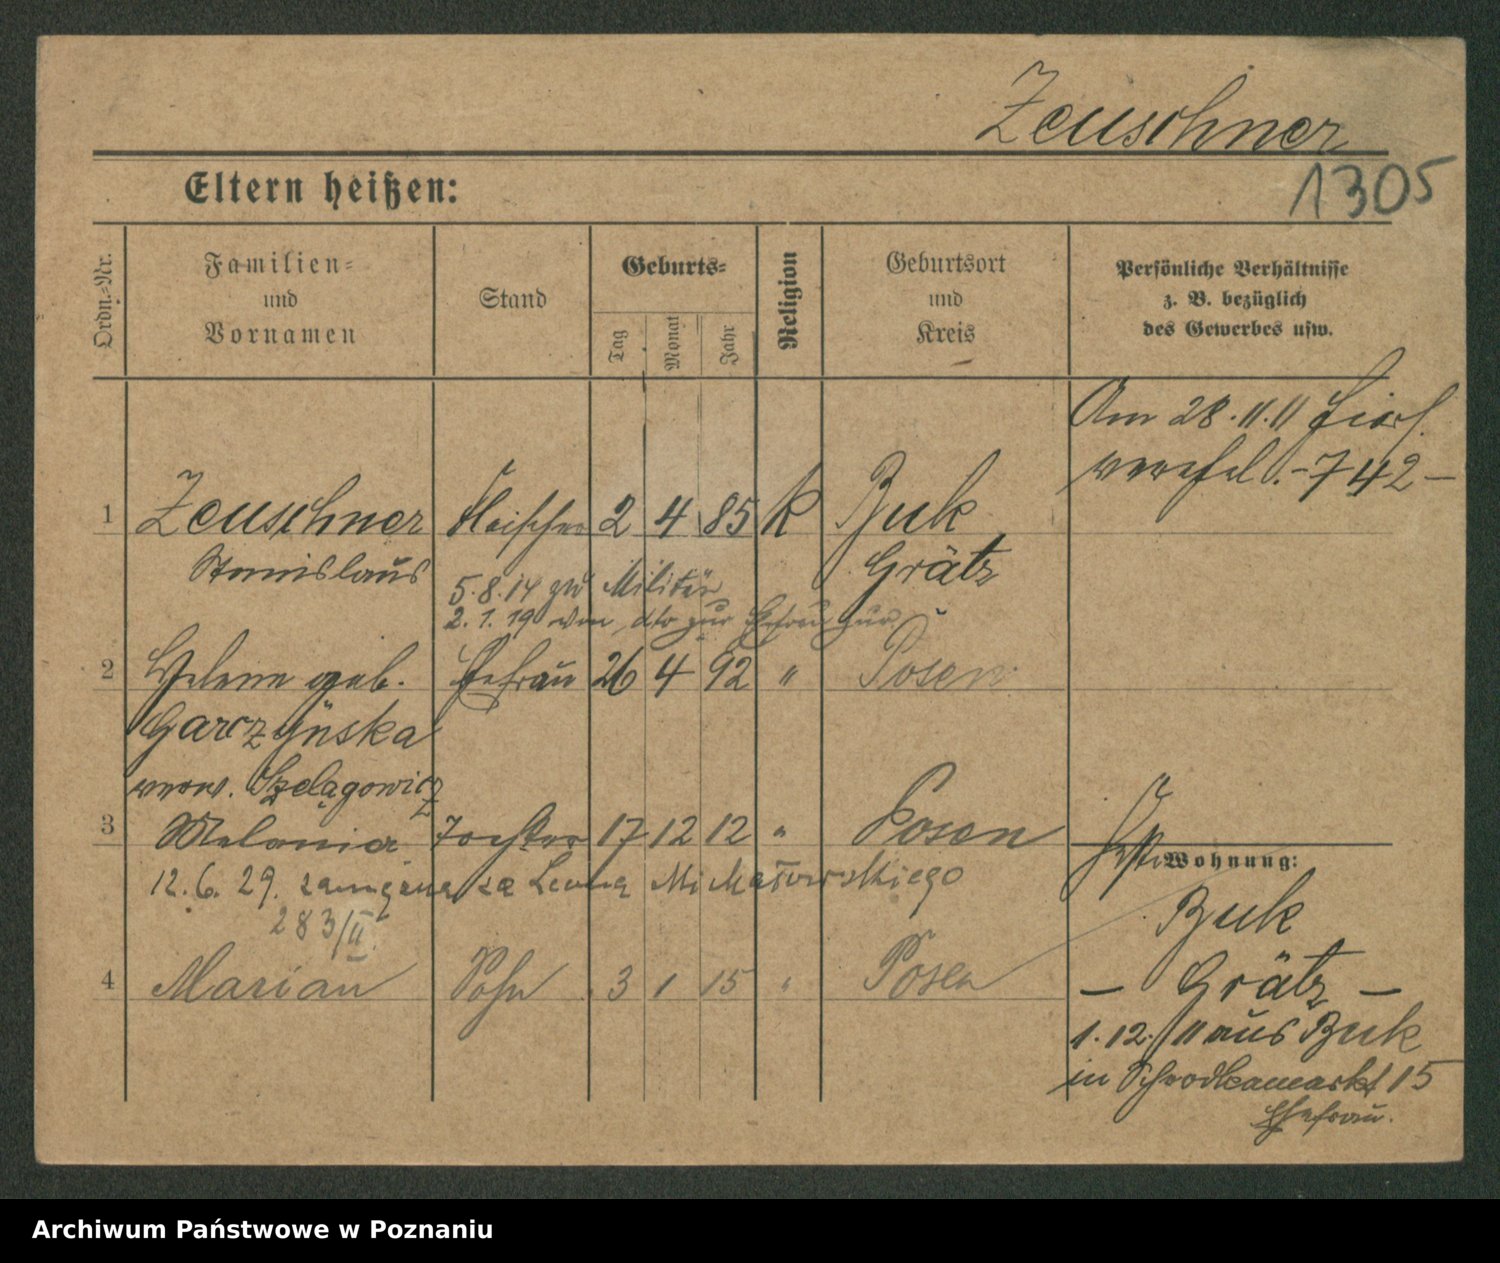 Zeuschner
1305
Eltern heißen:
Ordn.-Nr.
Familien- und Vornamen
Stand
Geburts-
Tag
Monat
Jahr
Religion
Geburtsort und Kreis
Persönliche Verhältnisse
z. B. bezüglich
des Gewerbes usw.
Am 28.11.11 hier
verehel. -742-
1 Zeuschner Fleischer 2 4 85 k Buk
Stanislaus Grätz
5.8.14 zu Militär
2.1.19 von dto zur Ehefrau zur
2 Helene geb. Ehefrau 26 4 92 " Posen
Garczyńska
verw. Szelągowicz
3 Melania Tochter 17 12 12 " Posen
12.6.29. zamężna za Leona Maćkowskiego
283/II
4 Marian Sohn 3 1 15 " Posen
Wohnung:
Buk
- Grätz -
1.12.11 aus Buk
in Schrodkamarkt 15
Ehefrau.
Archiwum Państwowe w Poznaniu